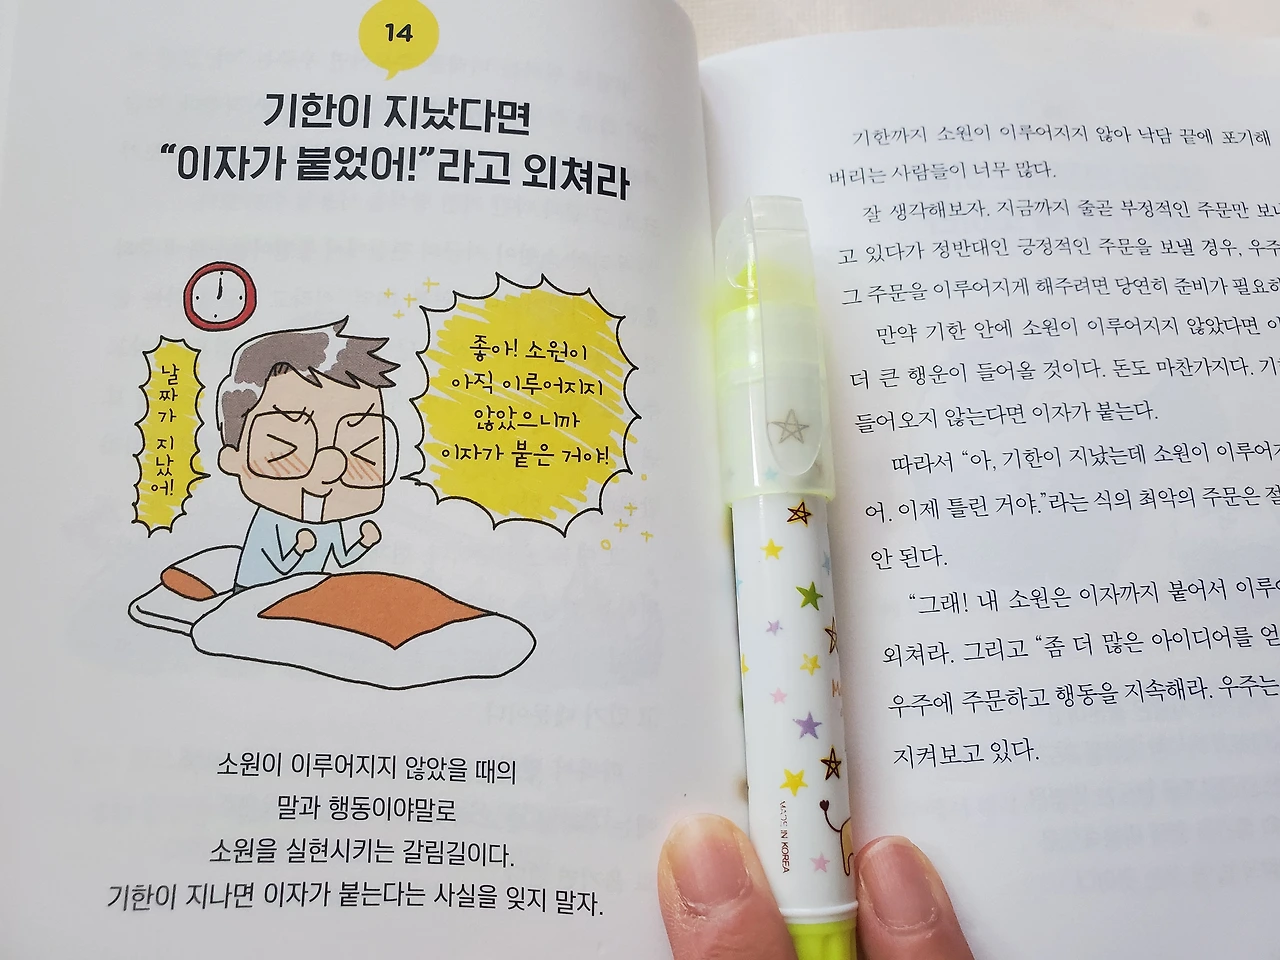 14
기한이 지났다면
“이자가 붙었어!”라고 외쳐라
날짜가 지났어!
좋아! 소원이
아직 이루어지지
않았으니까
이자가 붙은 거야!
소원이 이루어지지 않았을 때의
말과 행동이야말로
소원을 실현시키는 갈림길이다.
기한이 지나면 이자가 붙는다는 사실을 잊지 말자.
기한까지 소원이 이루어지지 않아 낙담 끝에 포기해
버리는 사람들이 너무 많다.
잘 생각해보자. 지금까지 줄곧 부정적인 주문만
고 있다가 정반대인 긍정적인 주문을 보낼 경우,
그 주문을 이루어지게 해주려면 당연히 준비가
만약 기한 안에 소원이 이루어지지 않았다면
더 큰 행운이 들어올 것이다. 돈도 마찬가지다.
들어오지 않는다면 이자가 붙는다.
따라서 “아, 기한이 지났는데 소원이
어. 이제 틀린 거야.”라는 식의 최악의 주문은
안 된다.
“그래! 내 소원은 이자까지 붙어서
외쳐라. 그리고 “좀 더 많은 아이디어를
우주에 주문하고 행동을 지속해라. 우주는
지켜보고 있다.
MADE IN KOREA